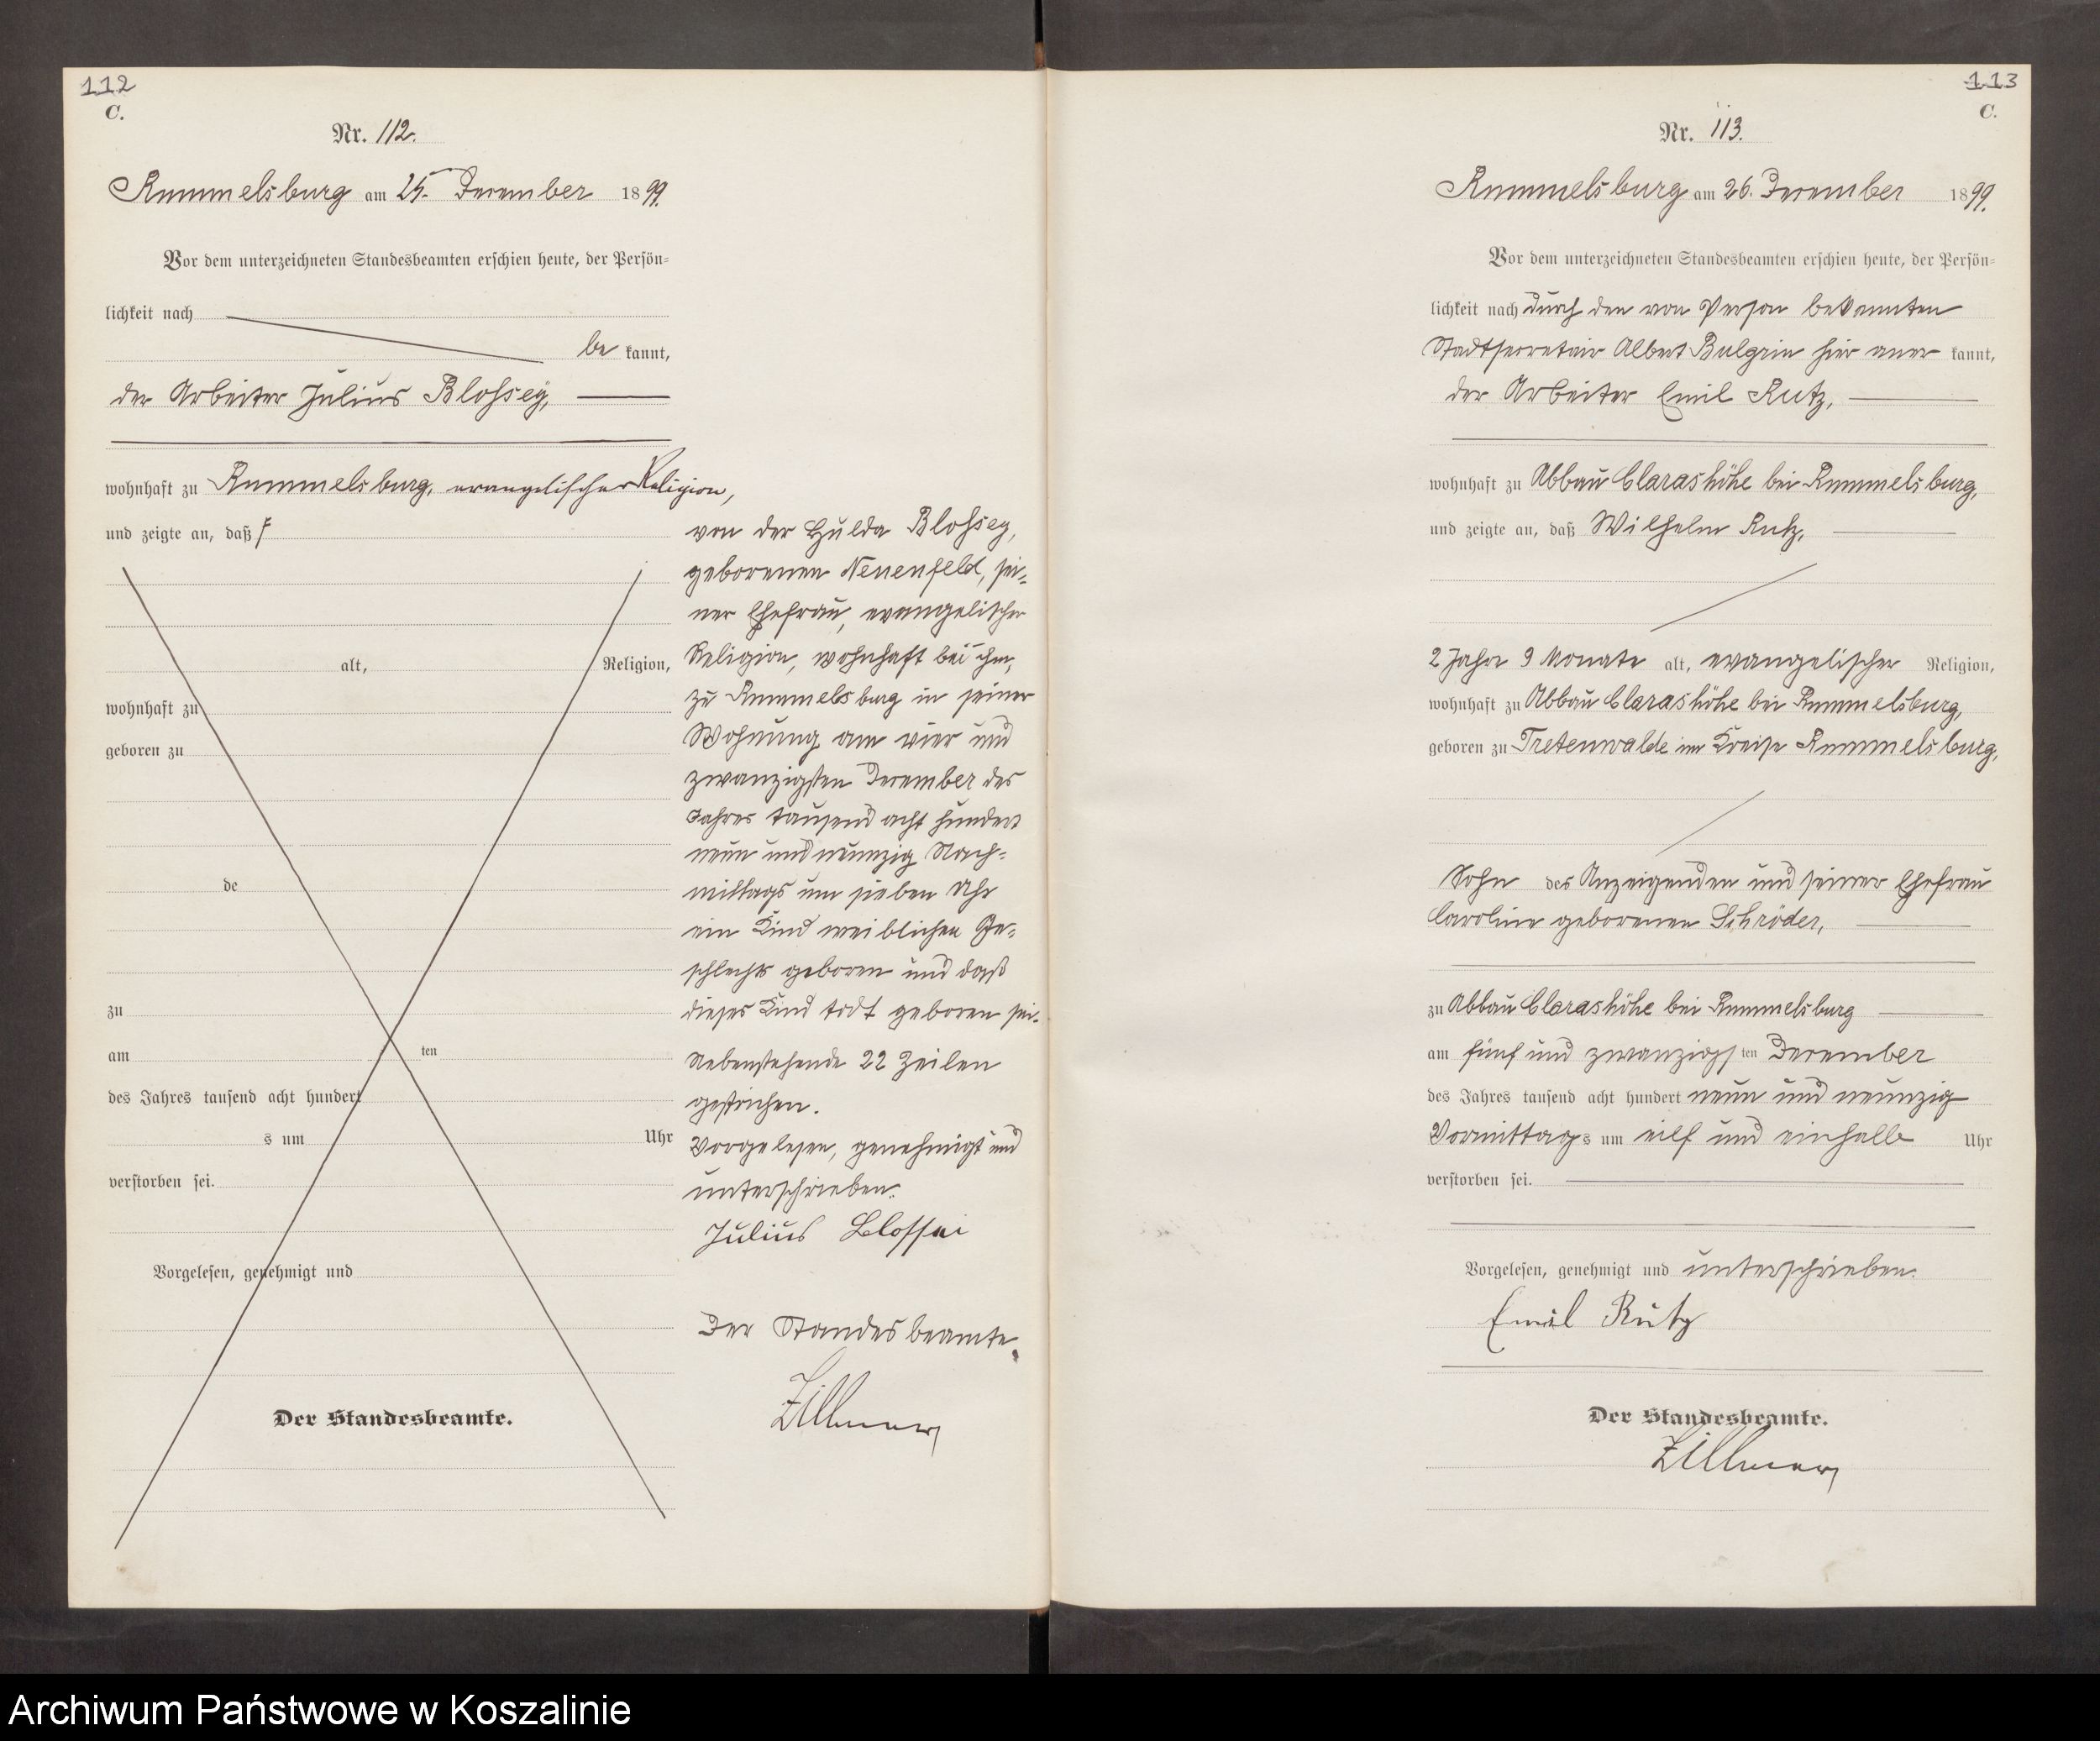 112
C.
Nr. 112.
Rummelsburg am 25. December 1899.
Vor dem unterzeichneten Standesbeamten erschien heute, der Persön-
lichkeit nach
be kannt,
der Arbeiter Julius Blohsey,
wohnhaft zu Rummelsburg, evangelischer Religion,
und zeigte an, daß
alt, Religion,
wohnhaft zu
geboren zu
de
zu
am ten
des Jahres tausend acht hundert
s um Uhr
verstorben sei.
Vorgelesen, genehmigt und
Der Standesbeamte.
von der Hulda Blohsey,
geborenen Neuenfeld, sei-
ner Ehefrau, evangelischer
Religion, wohnhaft bei ihm,
zu Rummelsburg in seiner
Wohnung am vier und
zwanzigsten December des
Jahres tausend acht hundert
neun und neunzig Nach-
mittags um sieben Uhr
ein Kind weiblichen Ge-
schlechts geboren und daß
dieses Kind todt geboren sei.
Nebenstehende 22 Zeilen
gestrichen.
Vorgelesen, genehmigt und
unterschrieben.
Julius Blossei
Der Standesbeamte.
Zillmer
113
C.
Nr. 113.
Rummelsburg am 26. December 1899.
Vor dem unterzeichneten Standesbeamten erschien heute, der Persön-
lichkeit nach durch den von Person bekannten
Stadtsecretair Albert Bulgrin hier aner kannt,
der Arbeiter Emil Rutz,
wohnhaft zu Abbau Clarashöhe bei Rummelsburg,
und zeigte an, daß Wilhelm Rutz,
2 Jahr 9 Monate alt, evangelischer Religion,
wohnhaft zu Abbau Clarashöhe bei Rummelsburg,
geboren zu Tretenwalde im Kreise Rummelsburg,
Sohn des Anzeigenden und seiner Ehefrau
Caroline geborenen Schröder,
zu Abbau Clarashöhe bei Rummelsburg
am fünf und zwanzigs ten December
des Jahres tausend acht hundert neun und neunzig
Vormittags um eilf und einhalb Uhr
verstorben sei.
Vorgelesen, genehmigt und unterschrieben.
Emil Rutz
Der Standesbeamte.
Zillmer
Archiwum Państwowe w Koszalinie